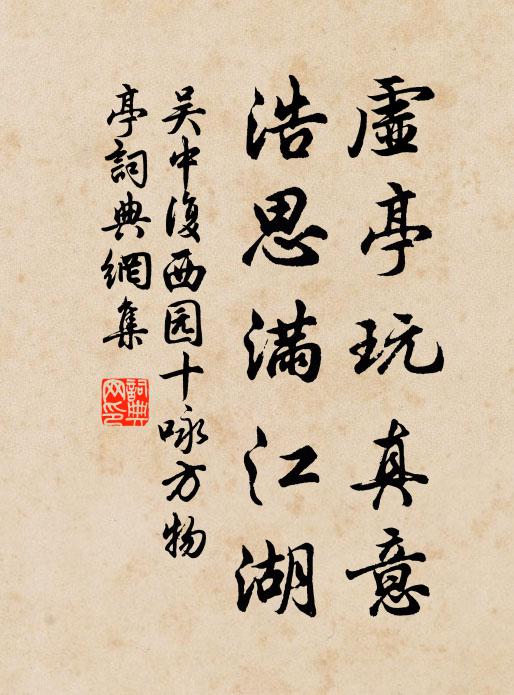 虛亭玩真意
浩思滿江湖
吴中復西园十咏方物
亭詞典網集
詞典网印